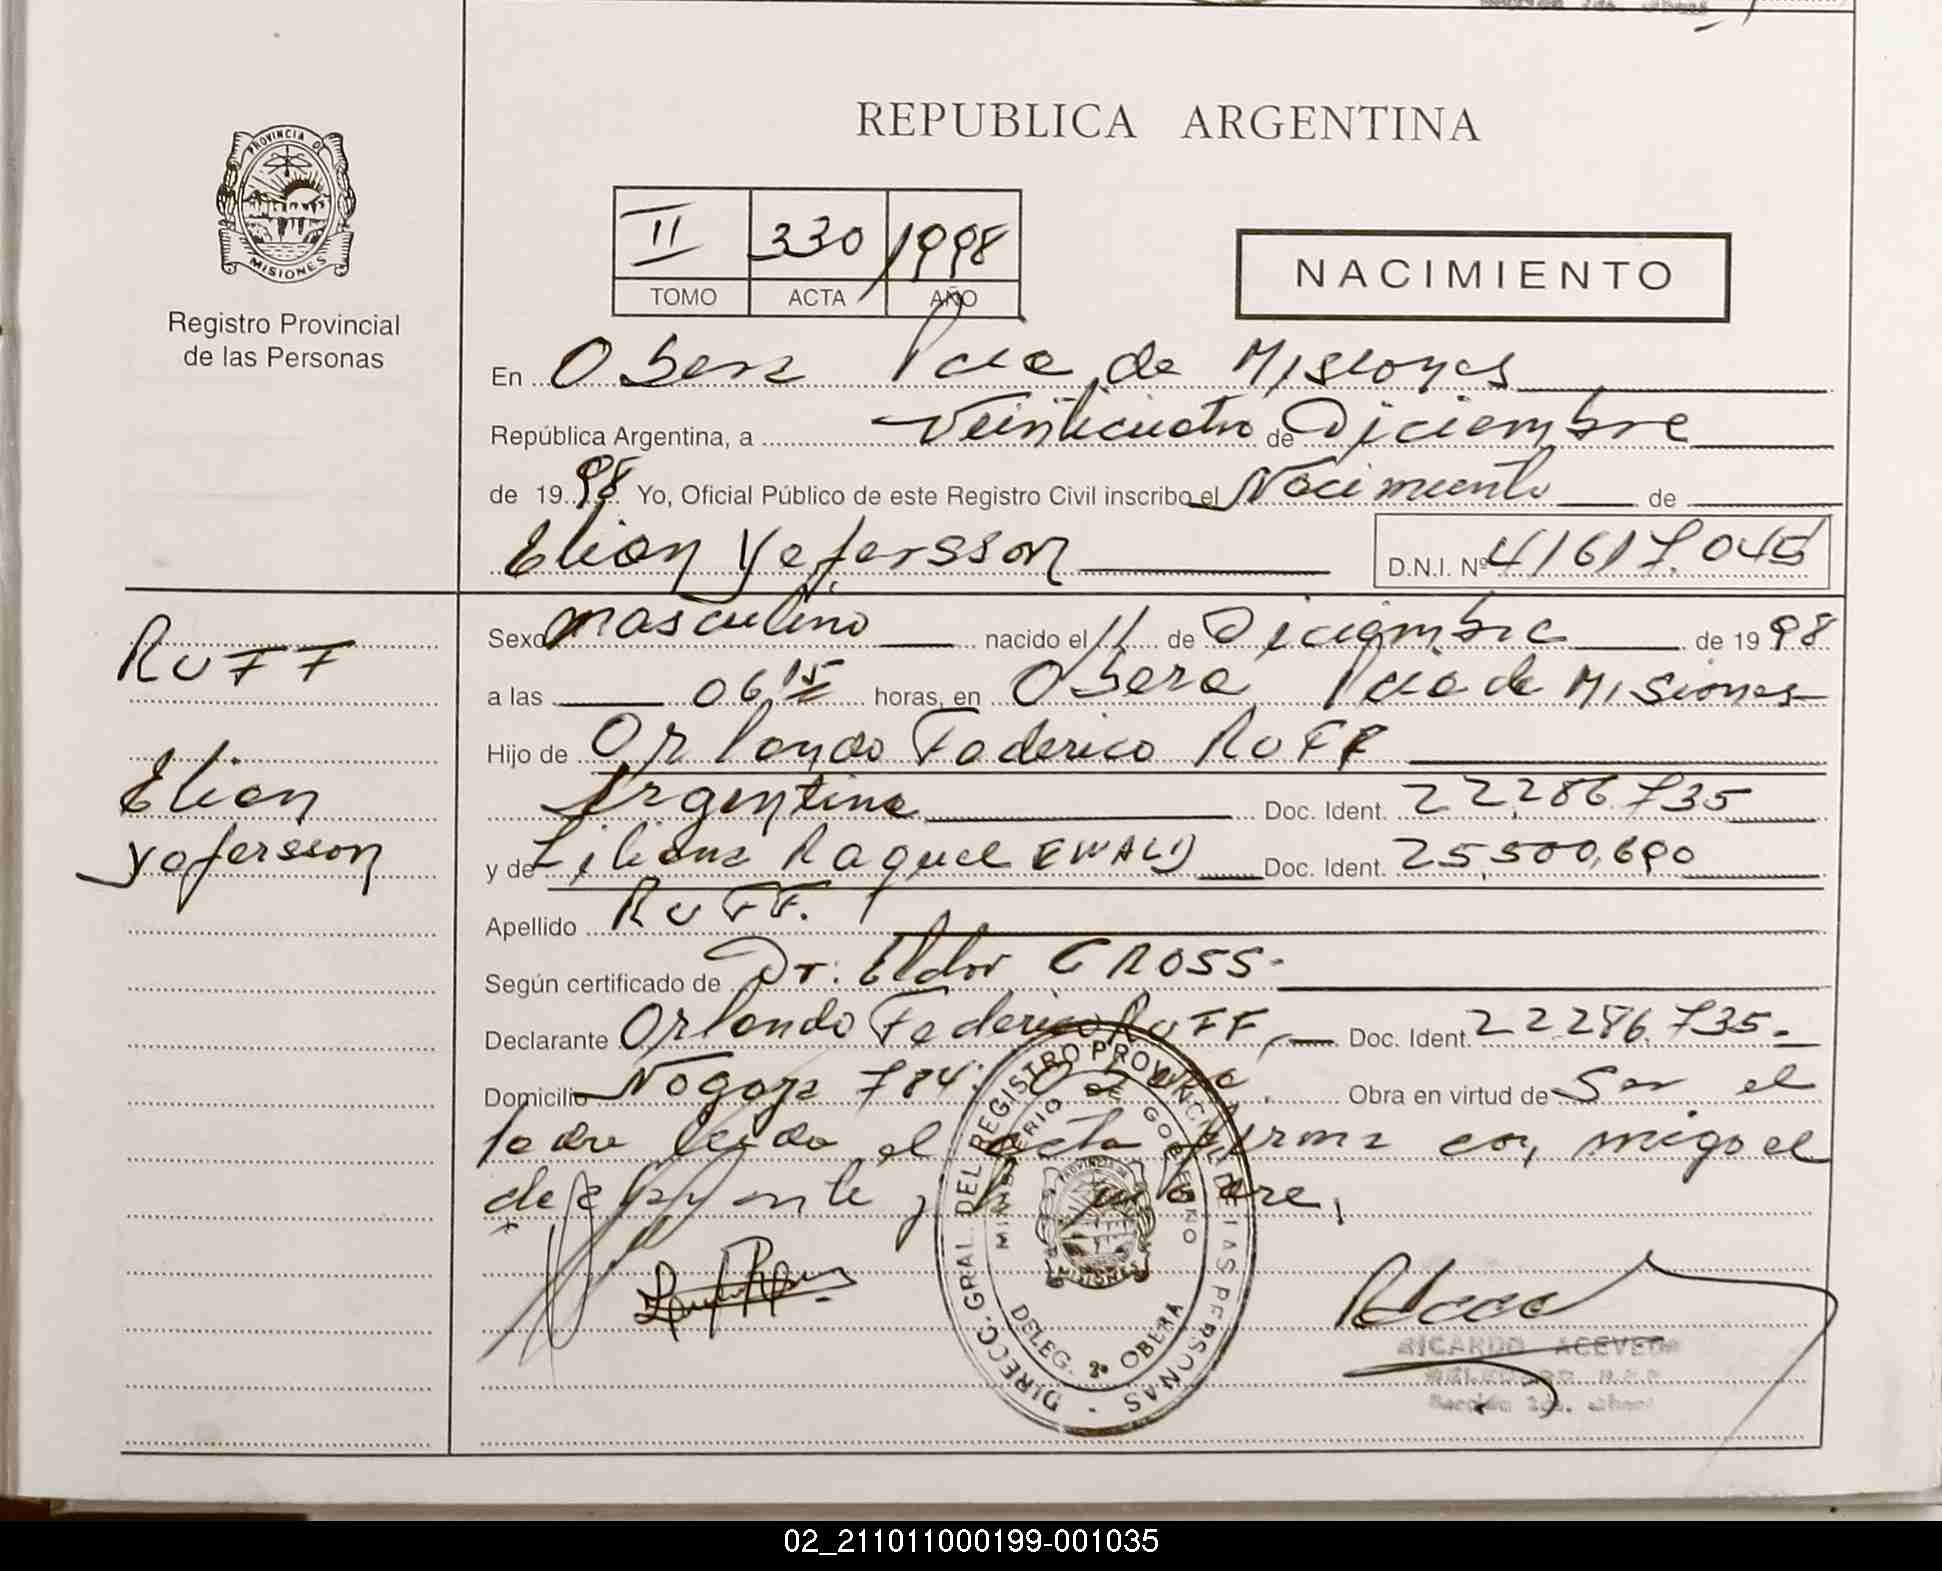 REPUBLICA ARGENTINA
PROVINCIA DE
MISIONES
Registro Provincial
de las Personas
II 330 1998
TOMO ACTA AÑO
NACIMIENTO
En Obera Pcia de Misiones
República Argentina, a Veinticuatro de Diciembre
de 1998 Yo, Oficial Público de este Registro Civil inscribo el Nacimiento de
Elian Yefersson D.N.I. Nº 41617.045
RUFF
Elian
Yefersson
Sexo masculino nacido el 11 de Diciembre de 1998
a las 06 15 horas, en Obera Pcia de Misiones
Hijo de Orlando Federico RUFF
Argentina Doc. Ident. 22,286.735
y de Liliana Raquel EWALD Doc. Ident. 25,500,690
Apellido RUFF.
Según certificado de Dr. Eldor GROSS-
Declarante Orlando Federico RUFF, Doc. Ident. 22286.735.
Domicilio Nogoya 784. Obera. Obra en virtud de Ser el
Padre leida el acta firma con migo el
declarante y la madre.
DIRECC. GRAL. DEL REGISTRO PROVINCIAL DE LAS PERSONAS -
MINISTERIO DE GOBIERNO
PROVINCIA DE
MISIONES
DELEG. 2ª OBERA
RICARDO ACEVEDO
Sección 2da. Obera
02_211011000199-001035